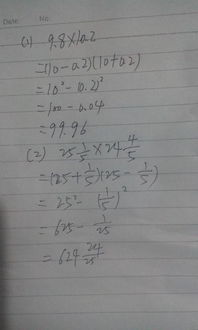 Date: No:
(1) 9.8×10.2
=(10-0.2)(10+0.2)
=10²-(0.2)²
=100-0.04
=99.96
(2) 25 1/5 × 24 4/5
=(25+1/5)(25-1/5)
=25²-(1/5)²
=625-1/25
=624 24/25